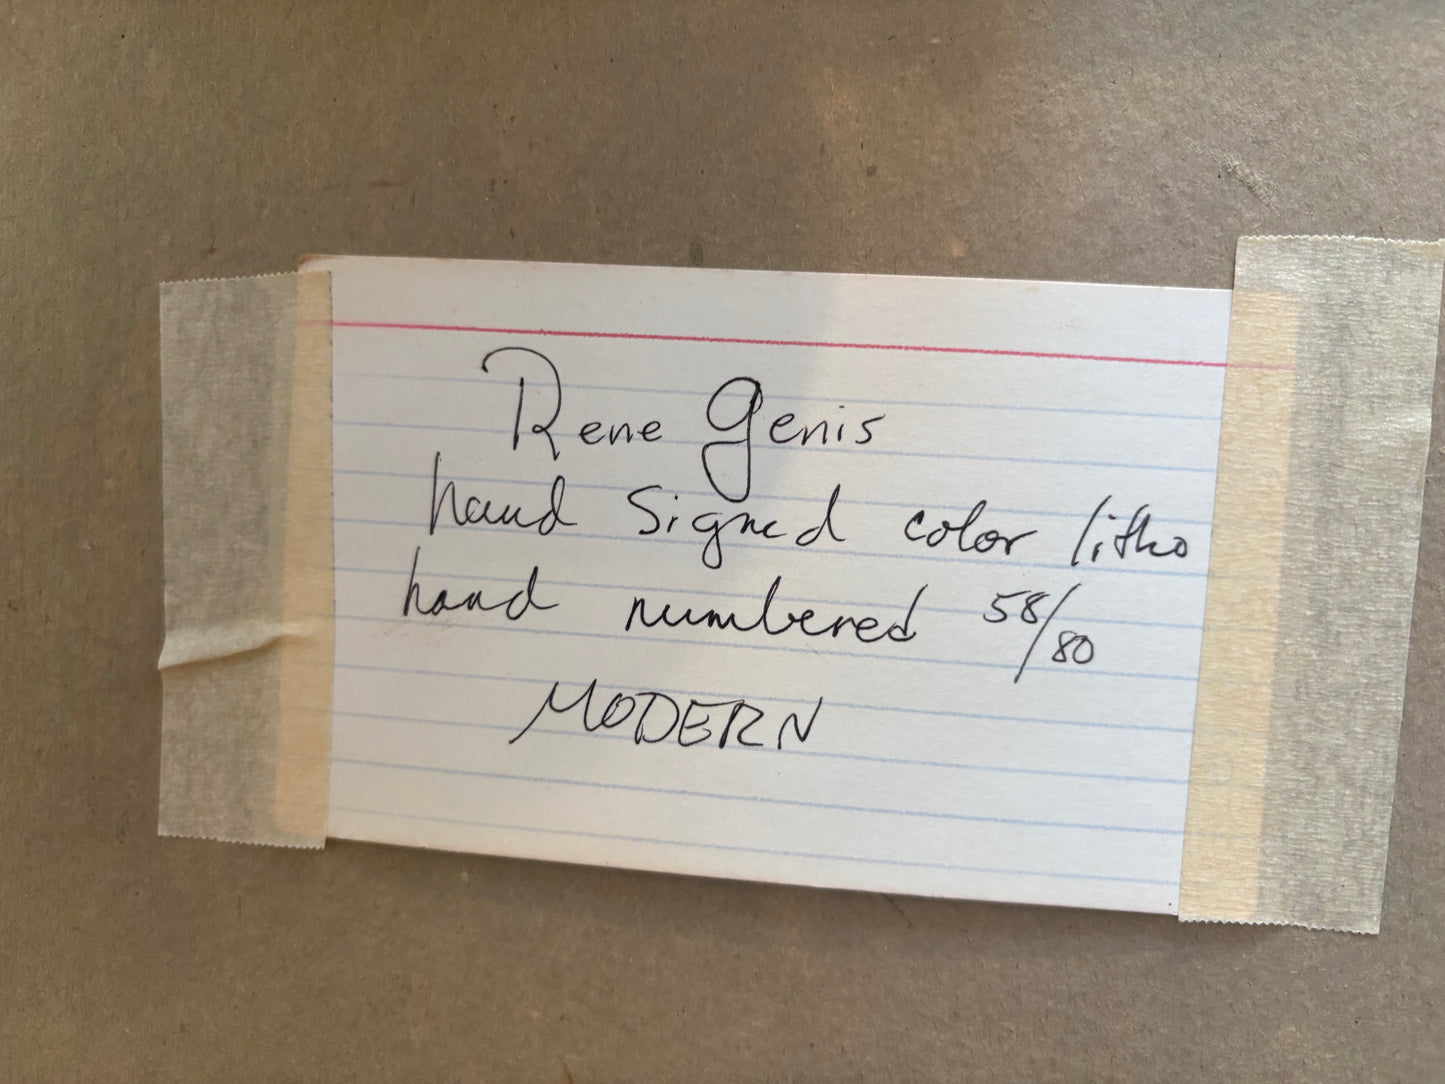 Rene Genis
hand signed color litho
hand numbered 58/80
MODERN